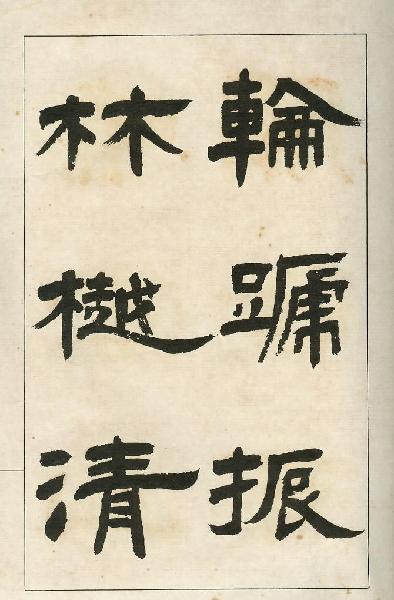 輪蹏振
林樾清